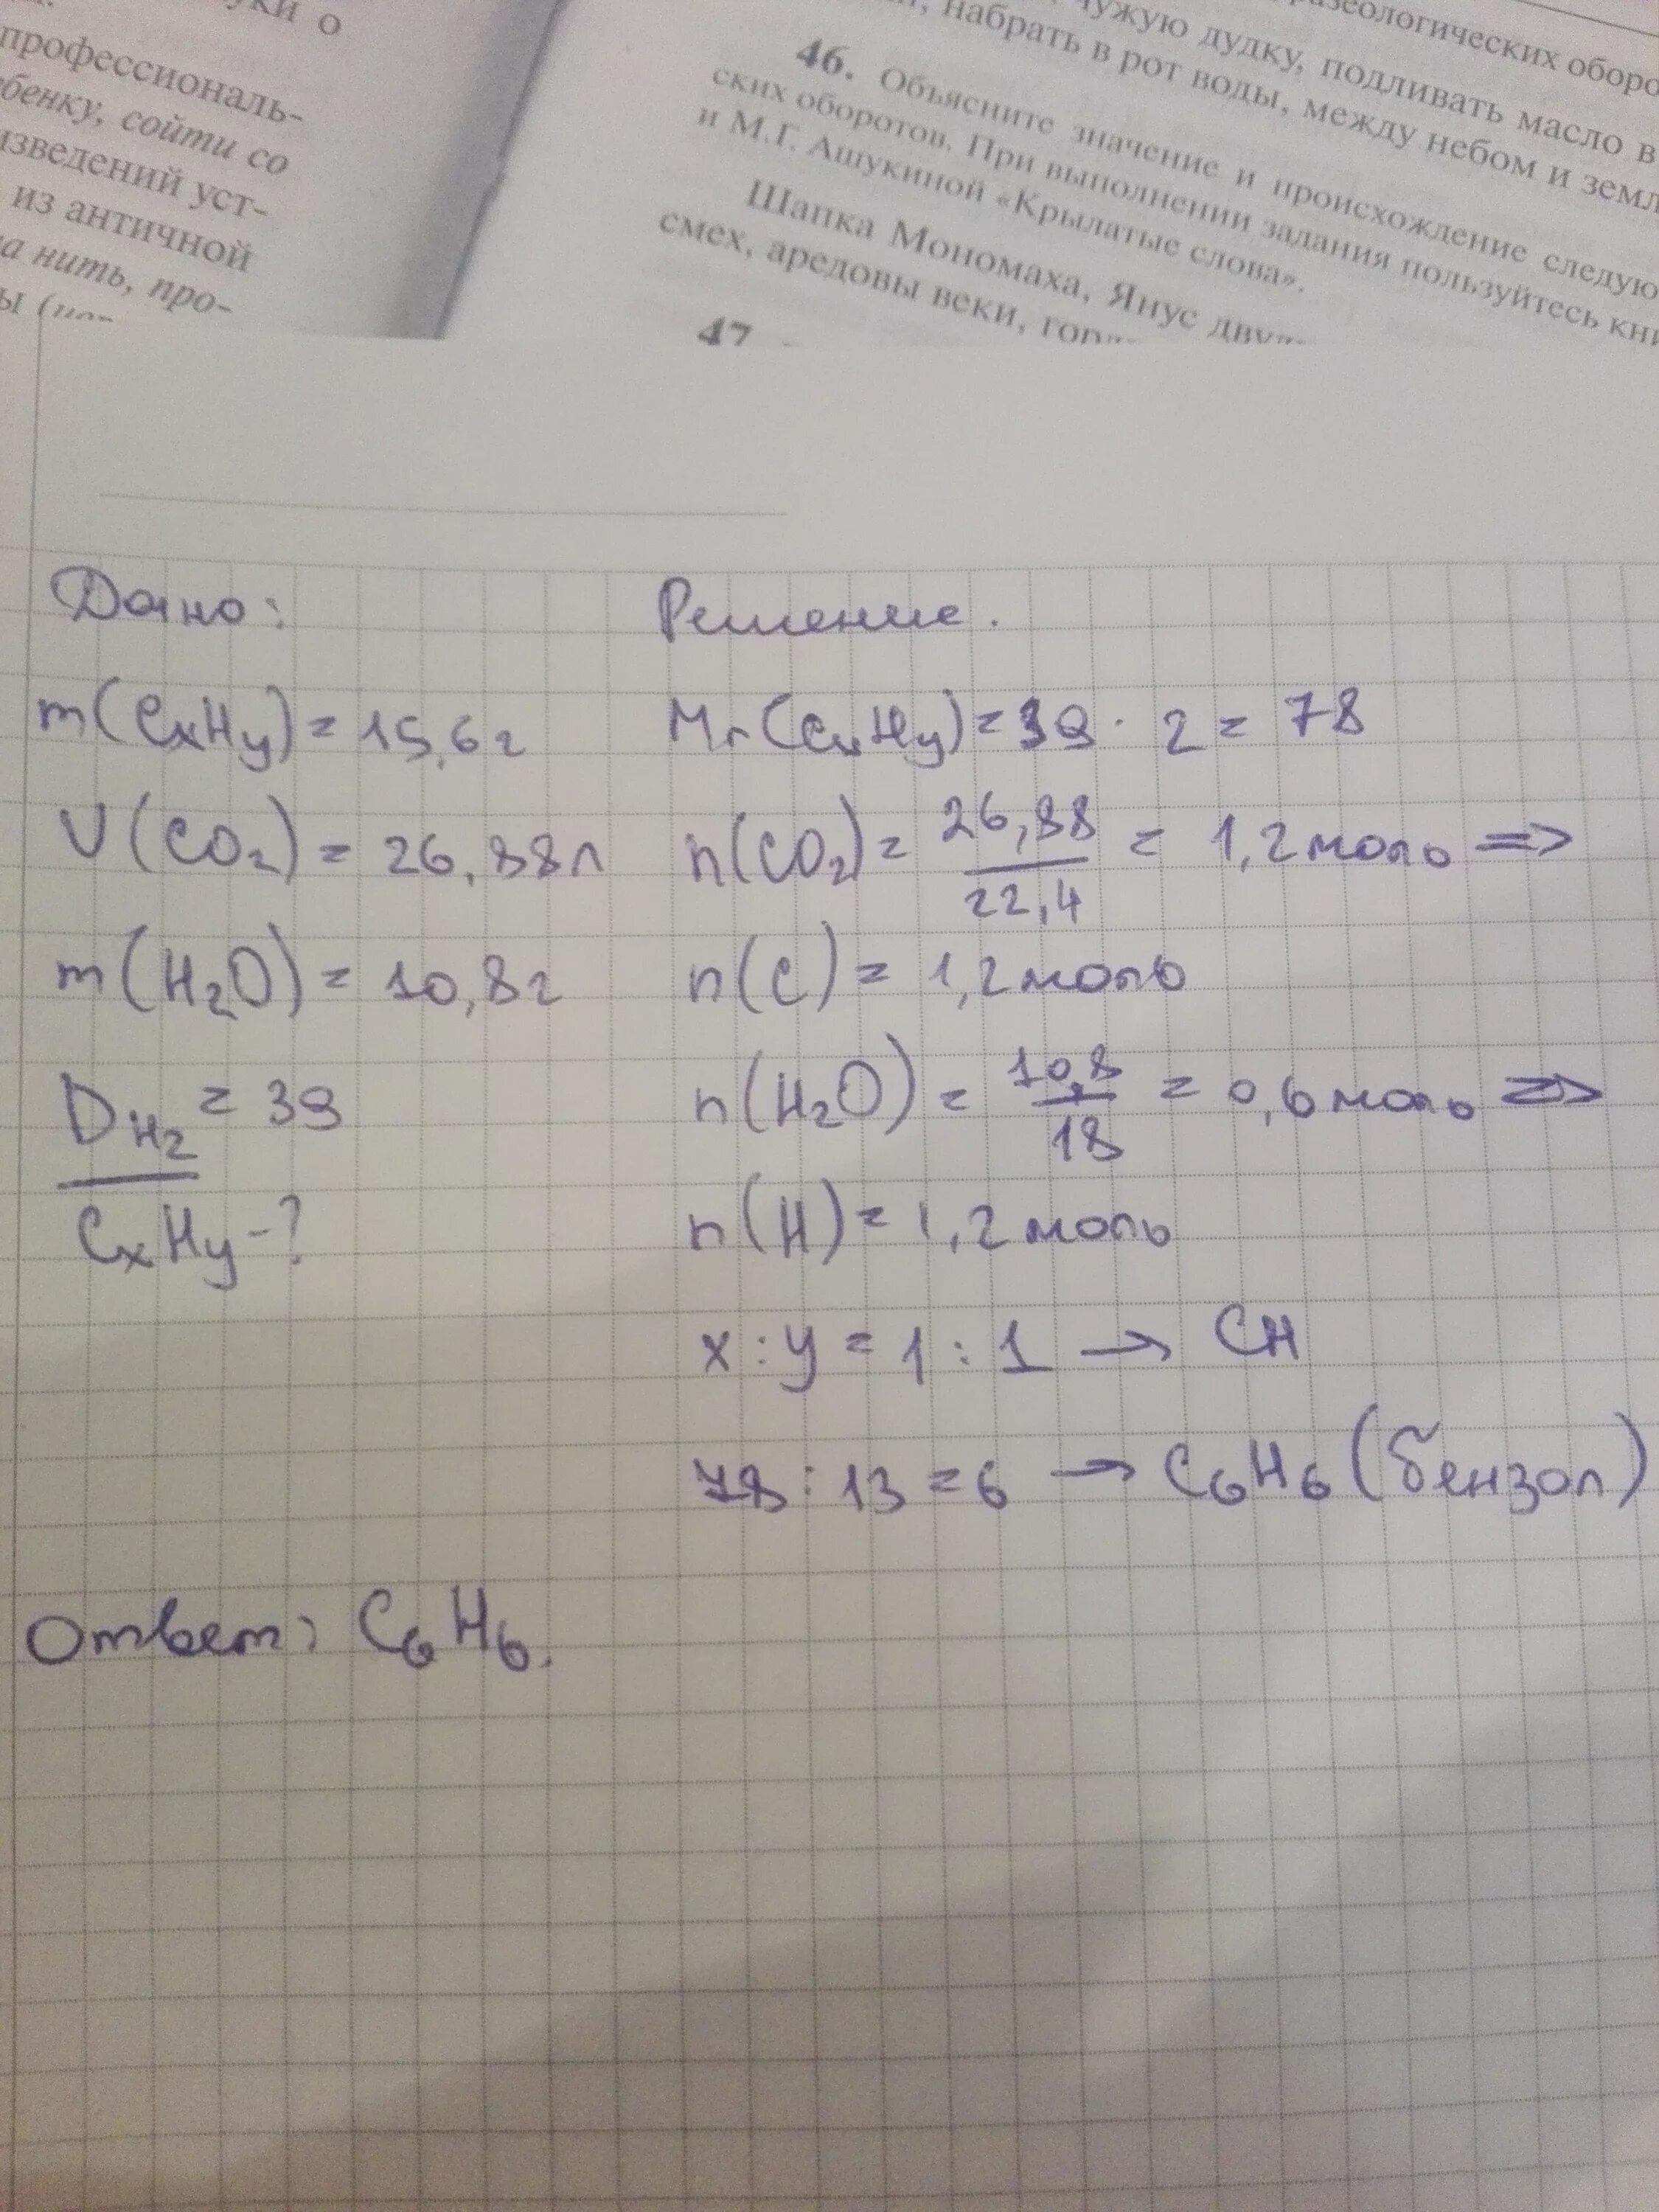 уки о
профессиональ-
бенку, сойти со
изведений уст-
из античной
а нить, про-
ы
разеологических оборо
чужую дудку, подливать масло в
набрать в рот воды, между небом и земл
46. Объясните значение и происхождение следую
ских оборотов. При выполнении задания пользуйтесь кни
и М.Г. Ашукиной «Крылатые слова».
Шапка Мономаха, Янус двул
смех, аредовы веки, горд
47
Дано:
m(CxHy) = 15,6г
V(CO2) = 26,88л
m(H2O) = 10,8г
DH2 = 39
CxHy-?
Решение.
Mr(CxHy) = 39 · 2 = 78
n(CO2) = 26,88/22,4 = 1,2моль =>
n(C) = 1,2моль
n(H2O) = 10,8/18 = 0,6моль =>
n(H) = 1,2моль
x : y = 1 : 1 → CH
78 : 13 = 6 → C6H6 (бензол)
Ответ: C6H6.